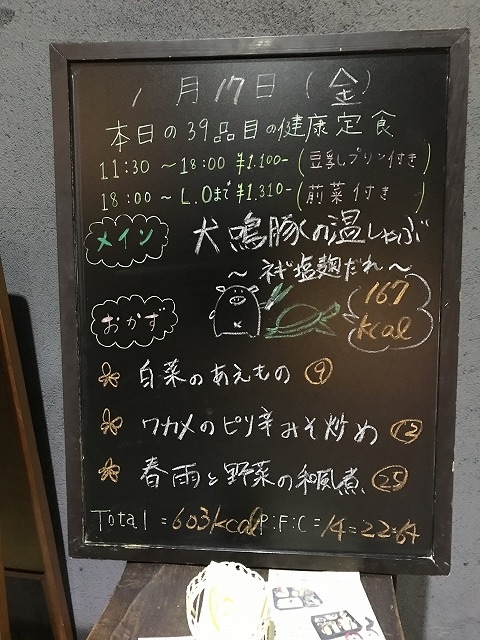 1月17日(金)
本日の39品目の健康定食
11:30 ～18:00 ¥1.100-(豆乳プリン付き)
18:00 ～L.Oまで ¥1.310-(前菜付き)
メイン
犬鳴豚の温しゃぶ
～ネギ塩麹だれ～
167 kcal
おかず
白菜のあえもの ⑨
ワカメのピリ辛みそ炒め ⑫
春雨と野菜の和風煮 ㉕
Total = 603kcal P:F:C=14=22:64